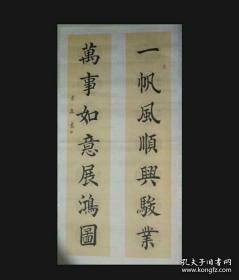 一帆風順興駿業
萬事如意展鴻圖
孔夫子旧书网